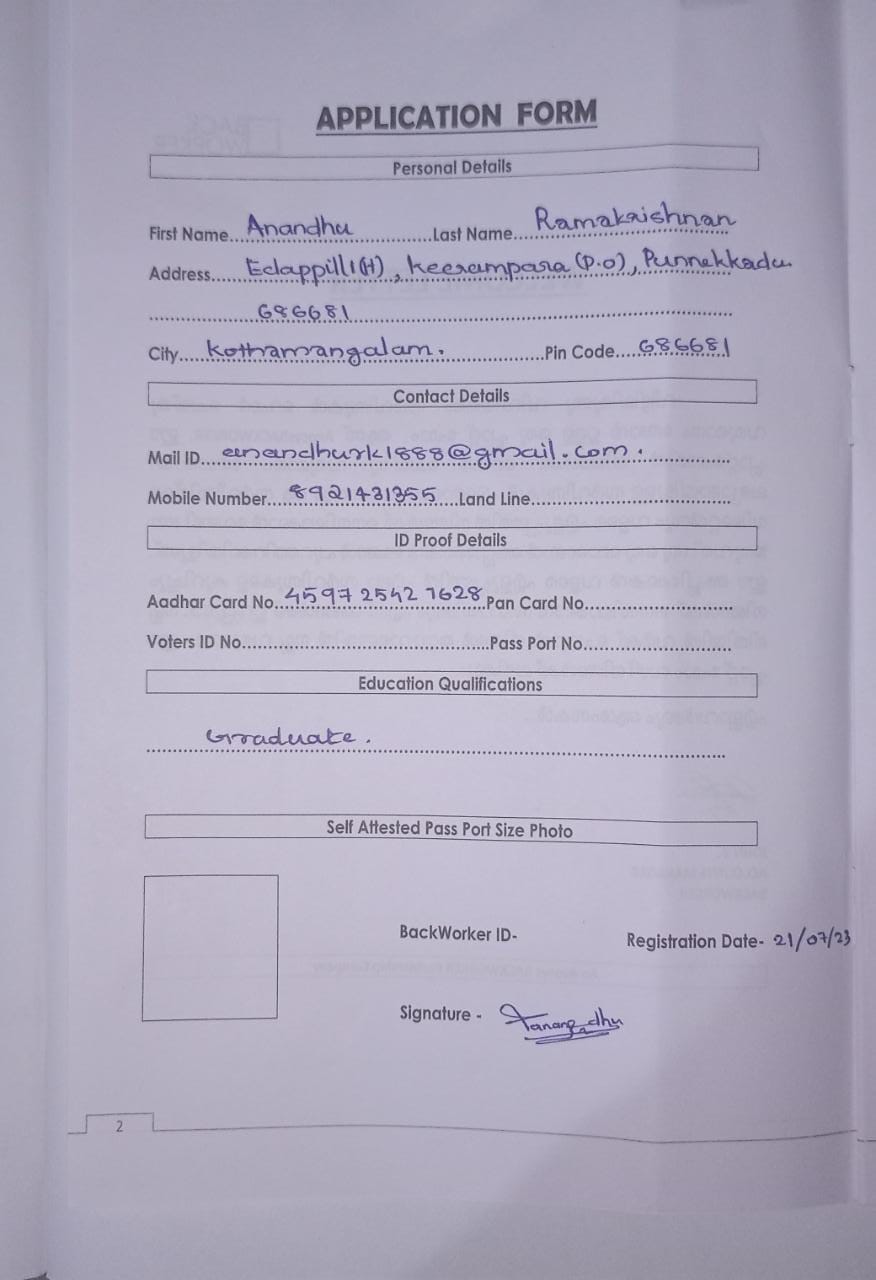 APPLICATION FORM
Personal Details
First Name... Anandhu ...Last Name... Ramakrishnan
Address... Edappilli(H), Keerampara (P.O), Punnekkadu
686681
City... Kothamangalam. ...Pin Code... 686681
Contact Details
Mail ID... anandhurk1888@gmail.com.
Mobile Number... 8921431355 ...Land Line...
ID Proof Details
Aadhar Card No... 4597 2542 7628 .Pan Card No...
Voters ID No... ...Pass Port No...
Education Qualifications
Graduate.
Self Attested Pass Port Size Photo
BackWorker ID-
Registration Date- 21/07/23
Signature -
2